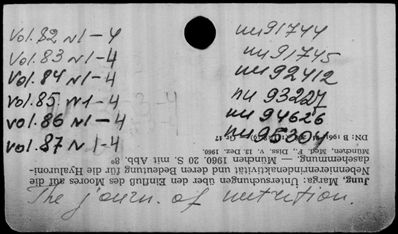 Vol. 82 N1-4 nu 91744
Vol. 83 N1-4 nu 91745
Vol. 84 N1-4 nu 92412
Vol. 85. N1-4 nu 93227
vol. 86 N1-4 nu 94626
vol. 87 N 1-4 nu 95304
The journ. of nutrition.
Jung, Marga: Untersuchungen über den Einfluß des Moores auf die
Nebennierenrindenaktivität und deren Bedeutung für die Hyaluroni-
dasehemmung. — München 1960. 20 S. mit Abb. 8°
München, Med. F., Diss. v. 13. Dez. 1960.